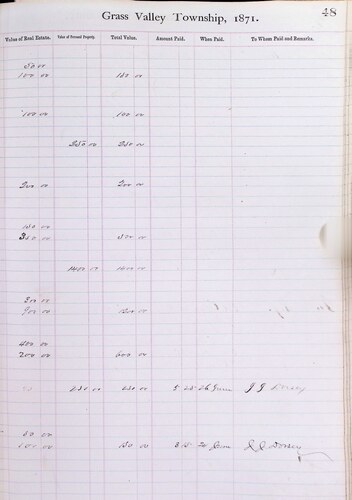 Grass Valley Township, 1871.
48
Value of Real Estate. Value of Personal Property. Total Value. Amount Paid. When Paid. To Whom Paid and Remarks.
50 00
100 00 150 00
100 00 100 00
250 00 250 00
200 00 200 00
150 00
350 00 500 00
1400 00 1400 00
300 00
900 00 1200 00
400 00
200 00 600 00
250 00 250 00 5 26 June J J Dorsey
50 00
100 00 150 00 3 15 June J J Dorsey